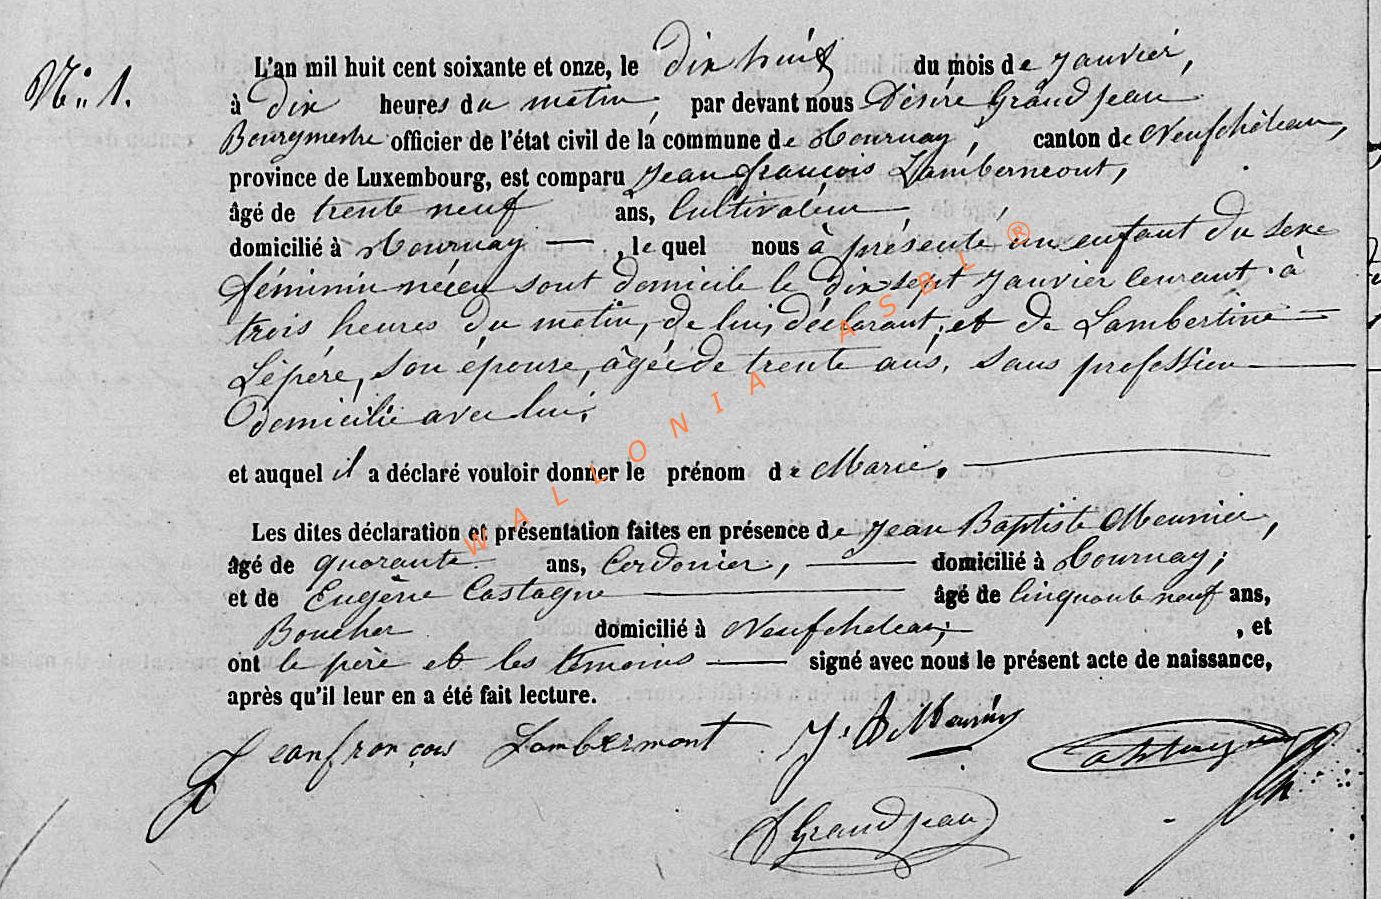 N° 1.
L'an mil huit cent soixante et onze, le dix huit du mois de Janvier,
à dix heures du matin, par devant nous Désiré Grandjean
Bourgmestre officier de l'état civil de la commune de Tournay, canton de Neufchâteau,
province de Luxembourg, est comparu Jean françois Lambermont,
âgé de trente neuf ans, Cultivateur,
domicilié à Tournay — , le quel nous à présenté un enfant du sexe
féminin née en sont domicile le dix sept Janvier courant à
trois heures du matin, de lui, déclarant, et de Lambertine
Lépére, son épouse, âgée de trente ans, sans profession
domicilié avec lui,
et auquel il a déclaré vouloir donner le prénom de Marie.
Les dites déclaration et présentation faites en présence de Jean Baptiste Meunier,
âgé de quarante ans, Cordonier, — domicilié à Tournay;
et de Eugène Castagne — âgé de Cinquante neuf ans,
Boucher domicilié à Neufchateau; , et
ont le père et les témoins — signé avec nous le présent acte de naissance,
après qu'il leur en a été fait lecture.
Jeanfrançois Lambermont J. B. Meunier Castagne
D Grandjean
WALLONIA ASBL ®